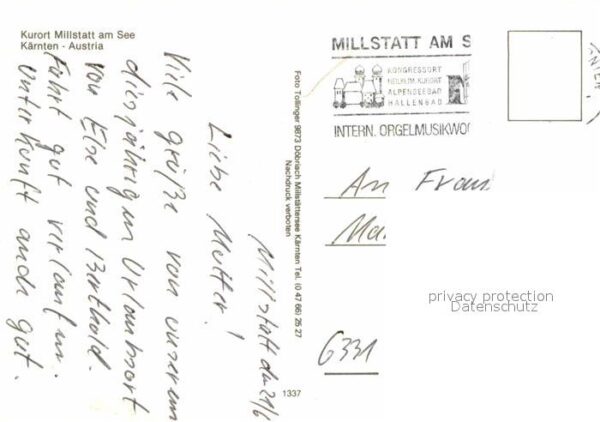 Kurort Millstatt am See
Kärnten - Austria
Millstatt den 21/6
Liebe Mutter!
Viele Grüße von unserem
diesjährigen Urlaubsort
von Else und Berthold.
Fahrt gut verlaufen.
Unterkunft auch gut.
Foto Tollinger 9873 Döbriach Millstättersee Kärnten Tel. (0 47 66) 25 27
Nachdruck verboten
1337
MILLSTATT AM S
KONGRESSORT
HEILKLIM. KURORT
ALPENSEEBAD
HALLENBAD
INTERN. ORGELMUSIKWO
An Frau
Ma
6331
privacy protection
Datenschutz